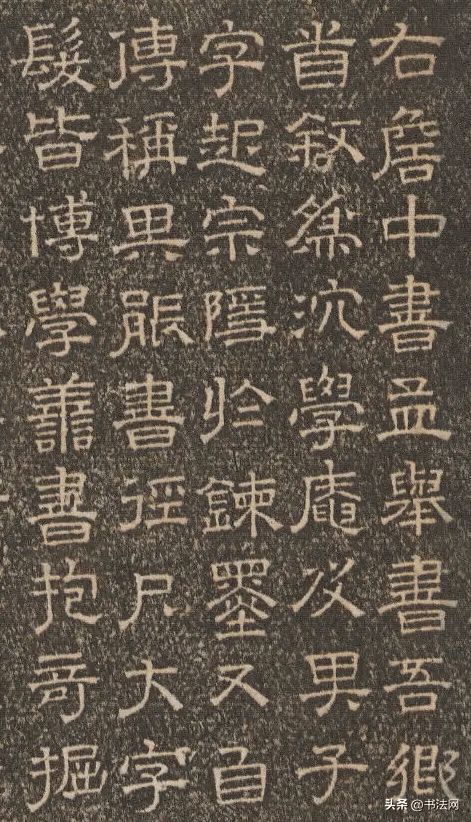 右詹中書孟舉書吾鄉
首叙沈學庵及其子
字起宗隱於鍊墨又自
傳稱其能書徑尺大字
髮皆博學善書抱奇掘
头条 @书法网